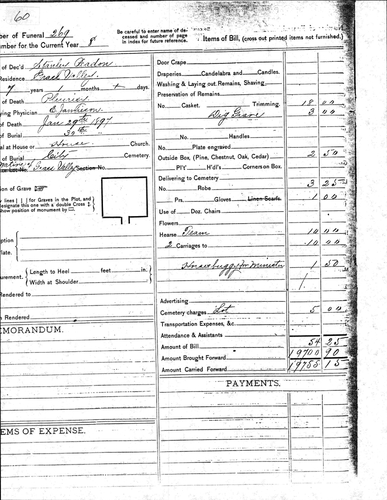 60
ber of Funeral 269
umber for the Current Year 8
Be carefull to enter name of de-
ceased and number of page
in index for future reference.
Items of Bill, (cross out printed items not furnished.)
of Dec'd Stanley Chadon
Residence Grass Valley
7 years 1 months days.
of Death
ying Physician E Jamison
of Death Jan 29th 1897
of Burial 30th
al at House or House Church.
of Burial City Cemetery.
Native of Grass Valley Section No.
ation of Grave
lines | | for Graves in the Plot, and
designate this one with a double Cross
show position of monument by
iption
late.
urement. Length to Heel feet in.
Width at Shoulder
Rendered to
n Rendered to
EMORANDUM.
EMS OF EXPENSE.
Door Crape
Draperies Candelabra and Candles.
Washing & Laying out Remains, Shaving,
Preservation of Remains.
No. Casket. Trimming. 18 00
Dig Grave 3 00
No. Handles
Plate engraved
Outside Box (Pine, Chestnut, Oak, Cedar) 2 50
P'l'y H'd'l's Corners on Box.
Delivering to Cemetery
No. Robe 3 25
Prs. Gloves Linen Scarfs 1 00
Use of Doz. Chairs
Flowers
Hearse Team 10 00
2 Carriages to 10 00
Horse buggy for Minister 1 50
Advertising
Cemetery charges Lot 5 00
Transportation Expenses, &c
Attendance & Assistants
Amount of Bill 54 25
Amount Brought Forward 19700 90
Amount Carried Forward 19755 15
PAYMENTS.